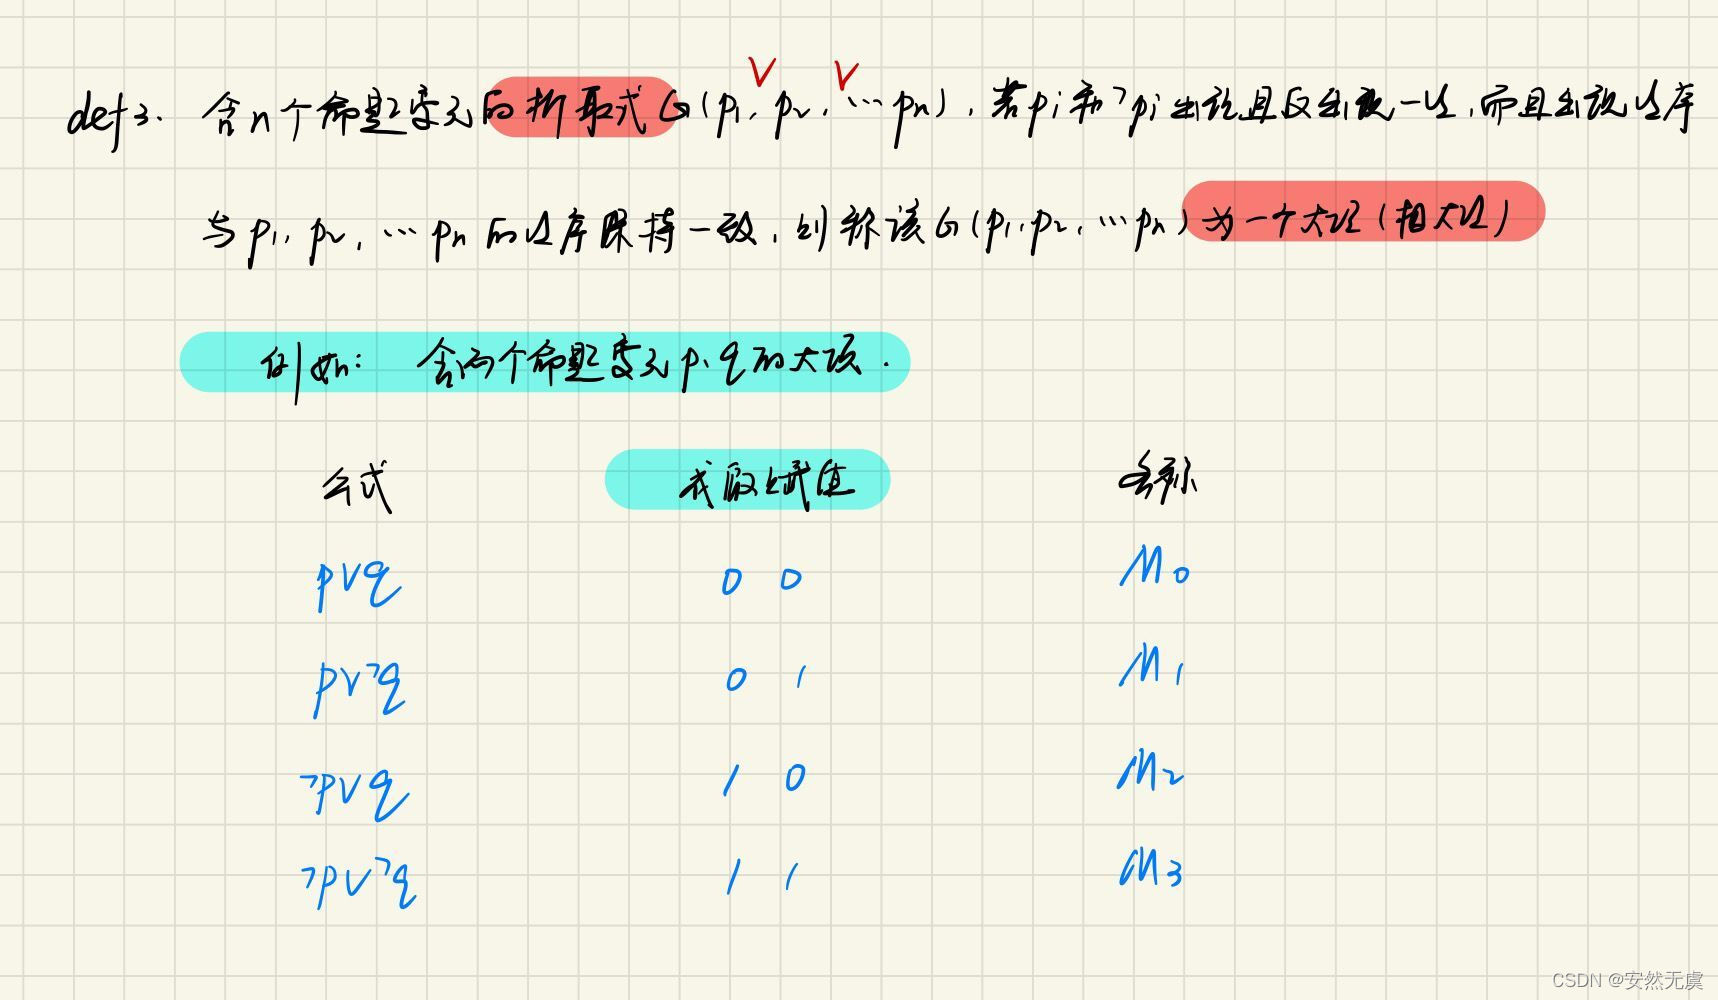 ∨ ∨
def 3. 含n个命题变元的析取式G(p₁, p₂, … pₙ), 若pᵢ和¬pᵢ出现且仅出现一次,而且出现次序
与p₁, p₂, … pₙ的次序保持一致,则称该G(p₁, p₂, … pₙ)为一个大项(极大项)
例如: 含两个命题变元p、q的大项.
公式 成假赋值 名称
p∨q 0 0 M₀
p∨¬q 0 1 M₁
¬p∨q 1 0 M₂
¬p∨¬q 1 1 M₃
CSDN @安然无虞